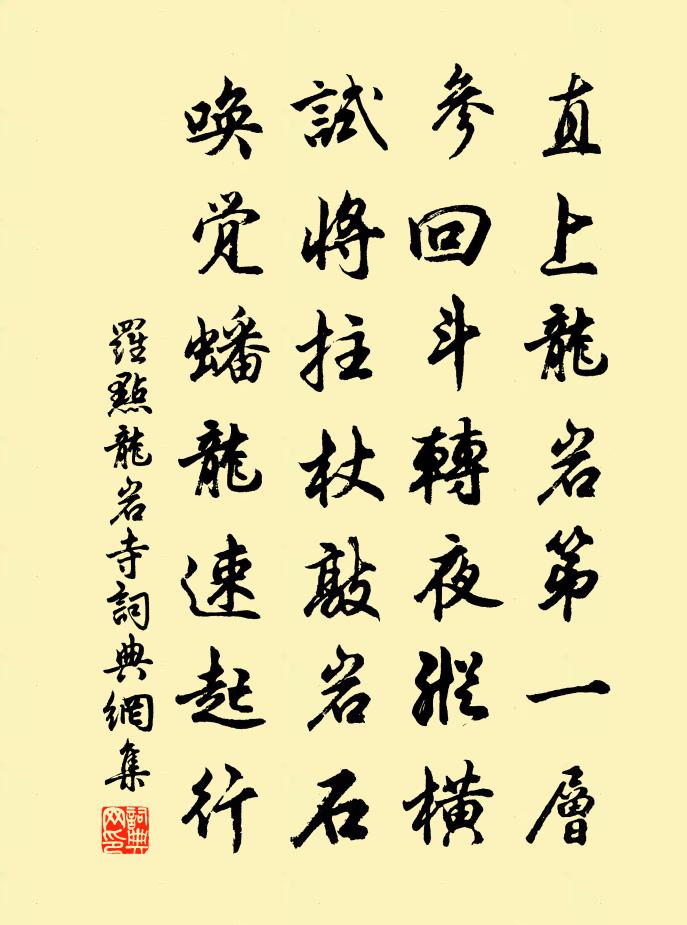 直上龍岩第一層
參回斗轉夜縱橫
試將拄杖敲岩石
喚覺蟠龍速起行
羅點龍岩寺詞典網集
詞典网印